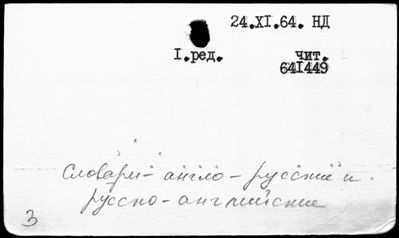 24.XI.64. НД
I.ред. чит.
641449
Словари англо-русские и
русско-английские
3